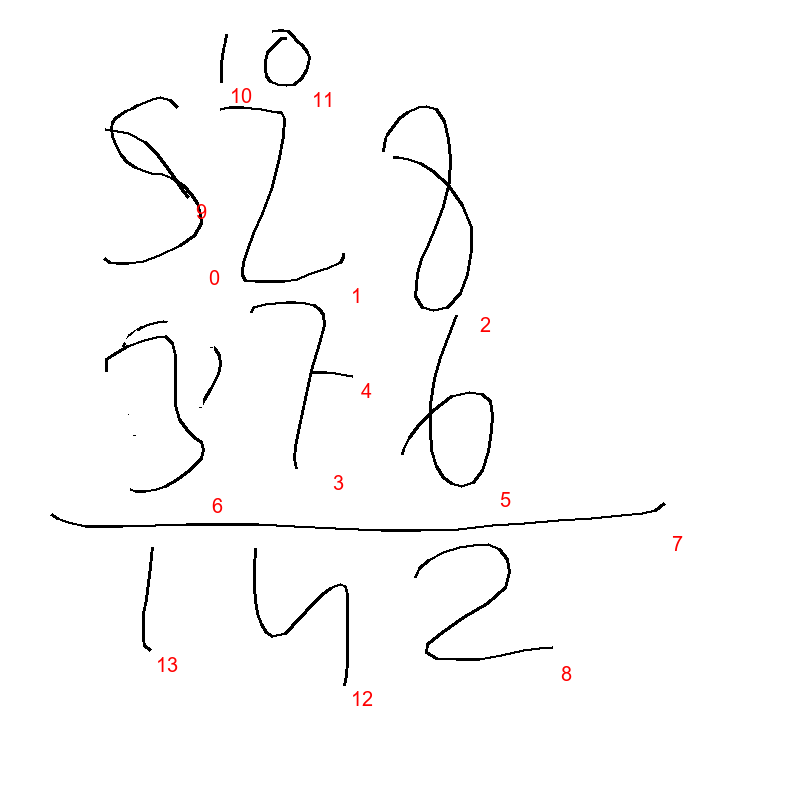 10
10 11
528
9
0 1 2
376
4
6 3 5
7
142
13 12 8